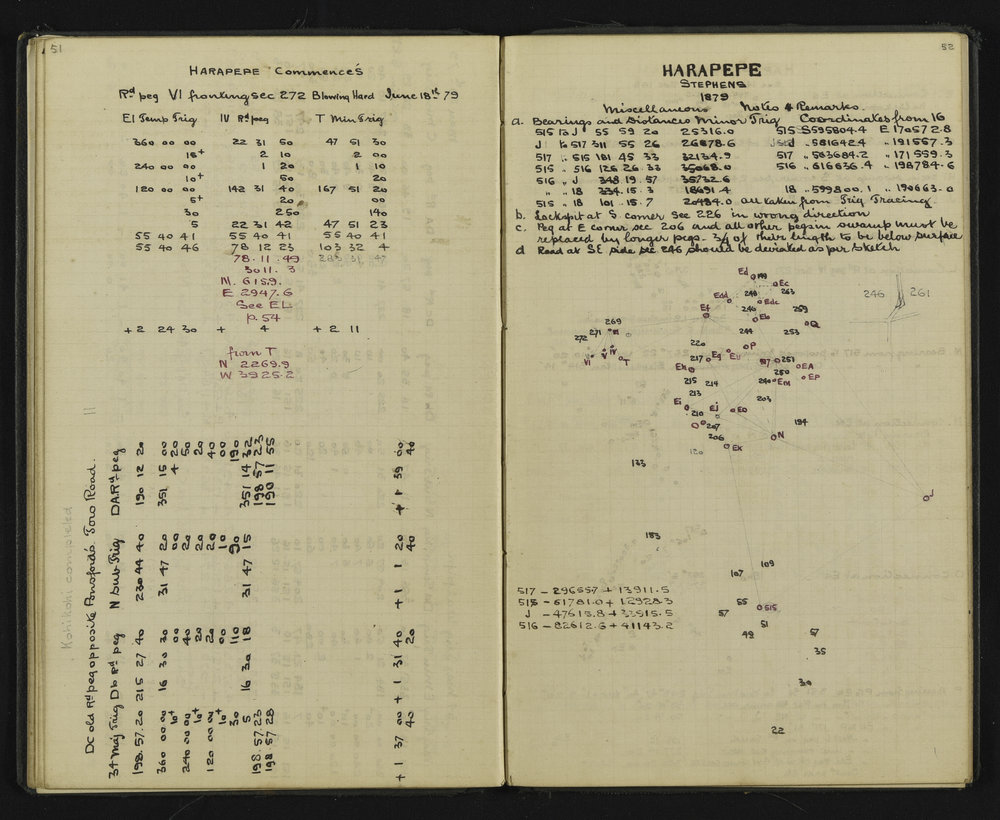 51
HARAPEPE Commences
Rd peg VI fronting sec 272 Blowing Hard June 18th 79
EI Temp Trig IV Rd peg T Min Trig
360 00 00 22 31 50 47 51 30
18+ 2 10 2 00
240 00 00 1 20 1 10
10+ 50 20
120 00 00 142 31 40 167 51 20
5+ 20 00
30 250 140
5 22 31 42 47 51 23
55 40 41 55 40 41 55 40 41
55 40 46 78 12 23 103 32 4
78. 11. 49
3011. 3
N. 615.9.
E 2947.6
See EL
p. 54
+2 24 30 + 4 + 2 11
from T
N 2269.9
W 3925.2
Kohikohi completed
DC old Rd peg opposite Ponsford's Toro Road.
34 Maj Trig Db Rd peg N Sub Trig DA Rd peg
198. 57. 20 215 27 40 230 44 40 190 12 20
360 00 00 16 30 30 31 47 20 351 15 00
10+ 00 00 4 20
240 00 00 40 20 50
10+ 20 20 20
120 00 00 20 20 40
10+ 00 10 00
30 110 90 190
5 16 30 18 31 47 15 351 14 32
198 57 23 198 57 23
198 57 28 190 11 55
+ 1 37 00 + 1 31 40 + 1 1 20 + 1 39 00
40 20 40 40
52
HARAPEPE
STEPHENS
1879
Miscellaneous Notes & Remarks.
a. Bearings and Distances Minor Trig Coordinates from 16
515 to J 55 59 20 25316.0 515 S595804.4 E170572.8
J to 517 311 55 26 26878.6 J 581642.4 " 191557.3
517 " 515 181 45 33 32134.9 517 " 583684.2 " 171559.3
515 " 516 126 26 33 35068.0 516 " 616636.4 " 198784.6
516 " J 348. 19. 57 35732.6
" " 18 334. 15. 3 18691.4 18 " 599800.1 " 190663.0
515 " 18 101. 15. 7 20484.0 all taken from Trig Tracing.
b. Lockspit at S corner Sec 226 in wrong direction
c. Peg at E corner sec 206 and all other pegs in swamp must be
replaced by longer pegs - 3/4 of their length to be below surface
d Road at SE side sec 246 should be deviated as per sketch
246 261
Ed 249
Ec
248 263
Edd Edc
Ef 246 259
Eb
269 Q
271 244 253
272 III
220 P
VI V IV T 217 Eg Eu 251
Eh 250 EA
215 214 240 Em EP
213 203
Ei Ej EO
210 194
207
206 N
Ek
120
133
J
183
109
107
517 - 29655.7 + 13911.5
515 - 61781.0 + 12928.3
J - 47613.8 + 33515.5
516 - 82612.6 + 41143.2
55
515
57
51
49 57
35
30
22